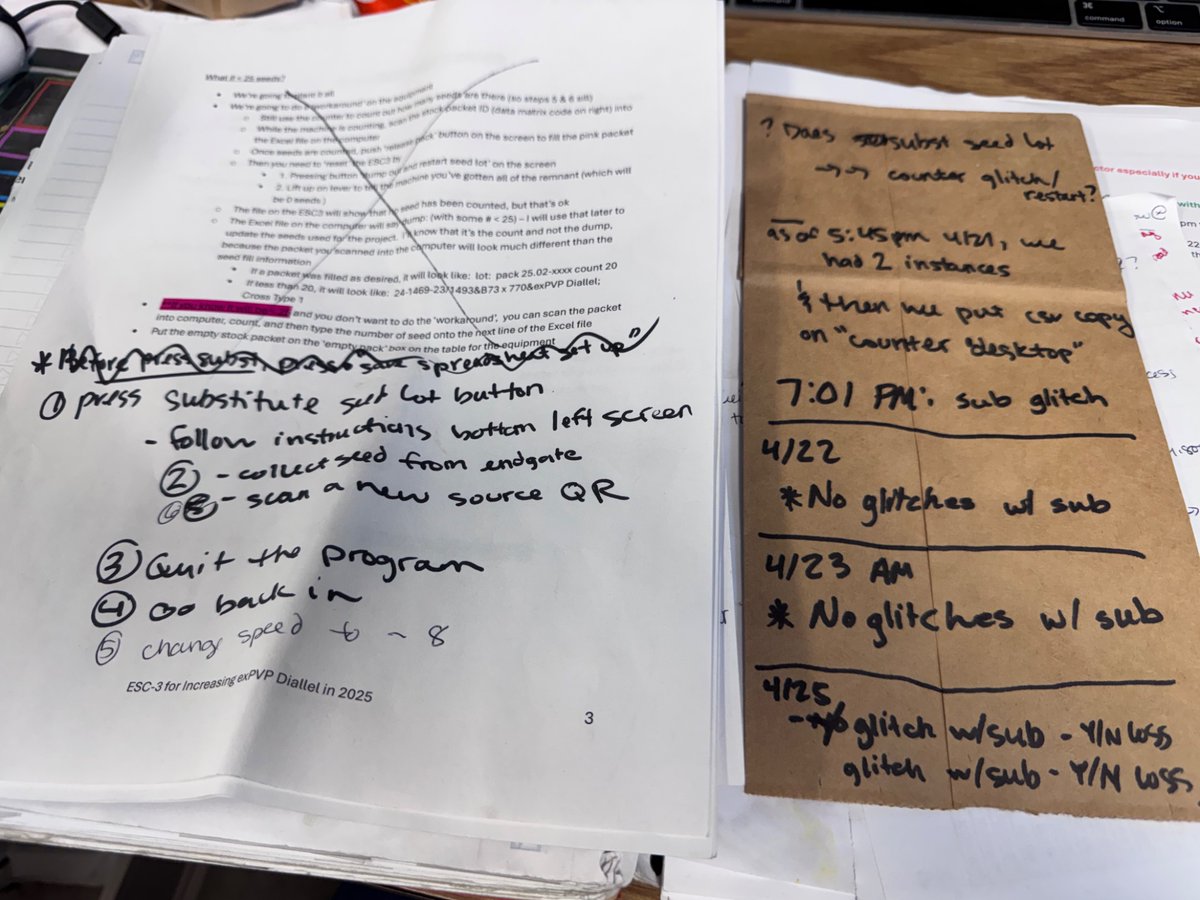 What if < 25 seeds?
We're going to the 'workaround' on the equipment
Still use the counter to count out how many seeds are there (so steps 5 & 6 still)
While the machine is counting, scan the stock packet ID (data matrix code on right) into
the Excel file on the computer
Once seeds are counted, push 'release pack' button on the screen to fill the pink packet
Then you need to 'reset' the ESC3 by
1. Pressing button 'dump out and restart seed lot' on the screen
2. Lift up on lever to tell the machine you've gotten all of the remnant (which will
be 0 seeds)
The file on the ESC3 will show that no seed has been counted, but that's ok
The Excel file on the computer will say dump: (with some # < 25) – I will use that later to
update the seeds used for the project. I know that it's the count and not the dump,
because the packet you scanned into the computer will look much different than the
seed fill information
If a packet was filled as desired, it will look like: lot: pack 25.02-xxxx count 20
If less than 20, it will look like: 24-1469-23/1493&B73 x 770&exPVP Diallel;
Cross Type 1
and you don't want to do the 'workaround', you can scan the packet
into computer, count, and then type the number of seed onto the next line of the Excel file
Put the empty stock packet on the 'empty pack' box on the table for the equipment
* Before press subst, press "save spreadsheet set up"
① press substitute seed lot button
- Follow instructions bottom left screen
② - collect seed from endgate
⑥ - scan a new source QR
③ Quit the program
④ Go back in
⑤ change speed to ~ 8
ESC-3 for Increasing exPVP Diallel in 2025
3
command
option
? Does subst seed lot
→→ counter glitch/
restart?
as of 5:45pm 4/21, we
had 2 instances
& then we put csv copy
on "counter desktop"
7:01 PM: sub glitch
4/22
*No glitches w/ sub
4/23 AM
* No glitches w/ sub
4/25
- No glitch w/sub - Y/N loss
glitch w/sub - Y/N loss
ctor especially if you